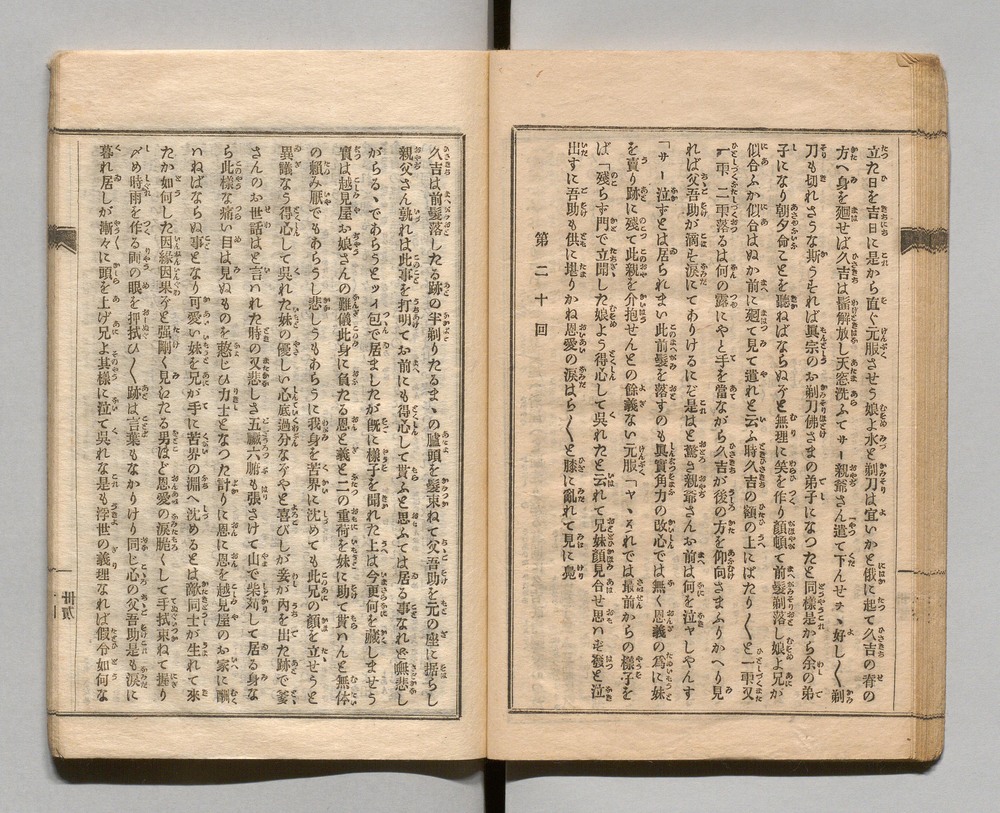 立た日を吉日に是から直ぐ元服させう娘よ水と剃刀は宜いかと俄に起て久吉の脊の
方へ身を廻せば久吉は髷解放し天窓洗ふてサー親爺さん遣て下んせヲヽ好し〱剃
刀も切れさうな斯うそれば眞宗のお剃刀佛さまの弟子になつたと同樣是から余の弟
子になり朝夕命ことを聽ねばならぬぞと無理に笑を作り顔傾て前髪剃落し娘よ兄か
似合ふか似合はぬか前に廻て見て遣れと云ふ時久吉の額の上にばたり〱と一雫又
一雫二雫落るは何の露にやと手を當ながら久吉が後の方を仰向さまふりかへり見
れば父吾助が滴す淚にてありけるにぞ是はと驚き親爺さんお前は何を泣ヤしやんす
「サー泣ずとは居られまい此前髪を落すのも眞實角力の改心では無く恩義の爲に妹
を賣り跡に殘て此親を介抱せんとの餘義ない元服「ヤヽそれでは最前からの樣子を
ば「殘らず門で立聞した娘よう得心して呉れたと云れて兄妹顔見合せ思ハず潑と泣
出すに吾助も供に堪りかね恩愛の淚はら〱と膝に亂れて見に鳧
第二十回
久吉は前髪落したる跡の半剃りたるまヽの臚頭を髮束ねて父吾助を元の座に据らし
親父さん孰れは此事を打明てお前にも得心して貰ふと思ふては居る事なれど嘸悲し
がらるヽであらうとツイ包で居ましたが既に樣子を聞れた上は今更何を藏しませう
實は越見屋お娘さんの難儀此身に負たる恩と義と二の重荷を妹に助て貰ハんと無体
の頼み厭でもあらうし悲しうもあらうに我身を苦界に沈めても此兄の顔を立せうと
異議なう得心して呉れた妹の優しい心底過分なぞやと喜びしが妾が内を出た跡で爹
さんのお世話はと言ハれた時の又悲しさ五臟六腑も張さけて山で柴刈して居る身な
ら此樣な痛い目は見ぬものを憗じひ力士となつた計りに恩に恩を越見屋のお家に酬
ハねばならぬ事となり可愛い妹を兄が手に苦界の淵へ沈めるとは敵同士が生れて來
たか如何した因縁因果ぞと强剛く見ゐたる男ほど恩愛の淚脆くして手拭束ねて握り
〆め時雨を作る兩の眼を押拭ひ〱跡は言葉もなかりけり同じ心の父吾助是も淚に
暮れ居しが漸々に頭を上げ兄よ其樣に泣て呉れな是も浮世の義理なれば假令如何な